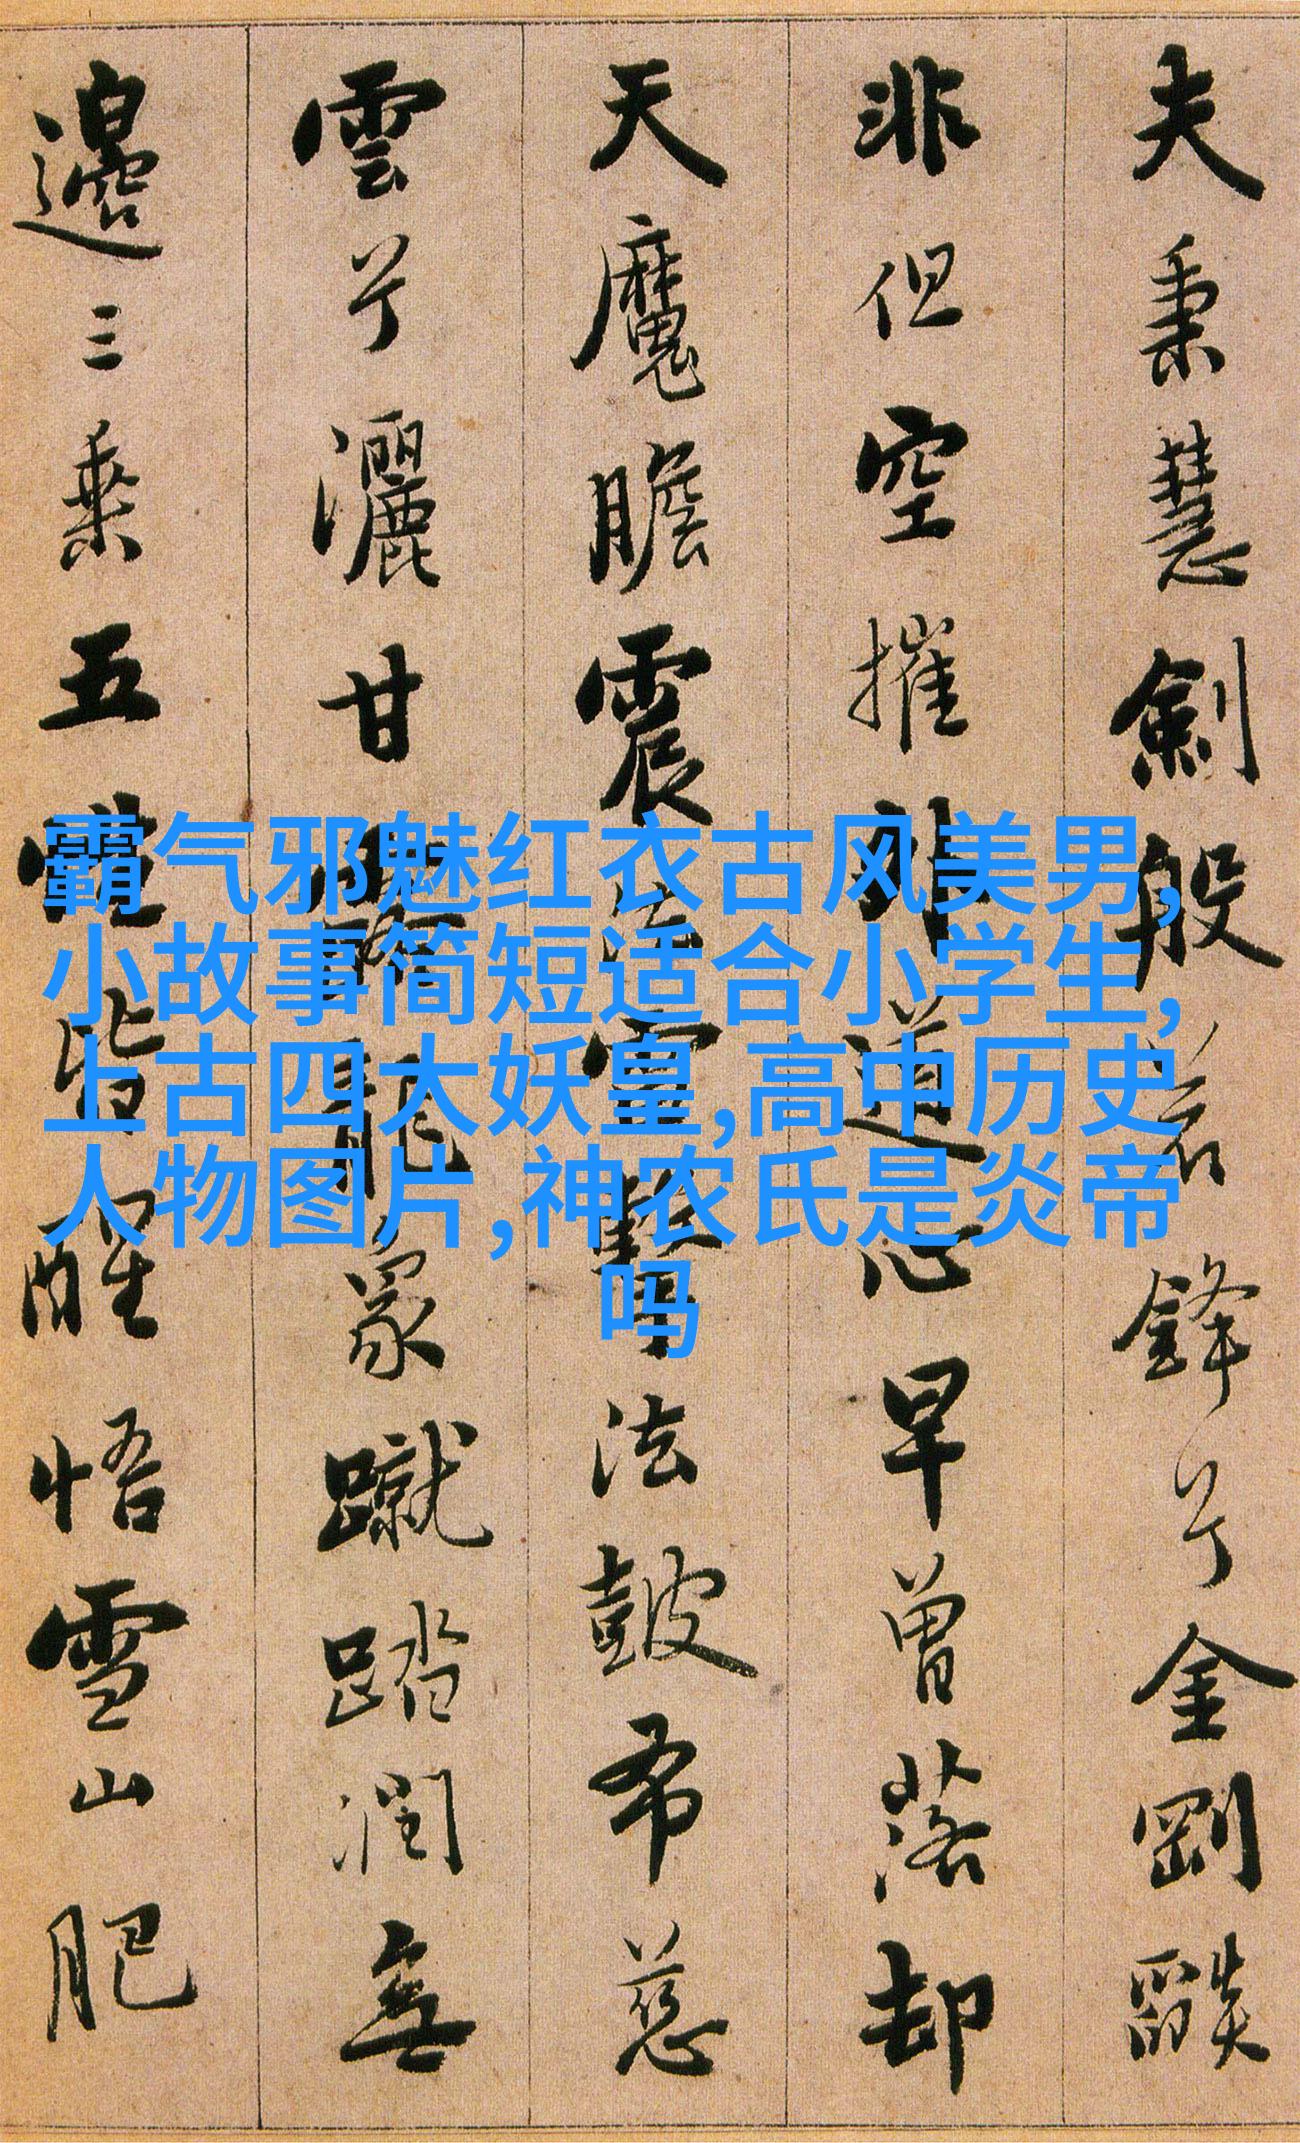 夫秉慧劍般若鋒兮金剛燄
非但空摧外道心早曾落却
天魔膽震法雷擊法皷布慈
雲兮灑甘露龍象蹴踏潤無
邊三乘五性皆醒悟雪山肥
霸气邪魅红衣古风美男,
小故事简短适合小学生,
上古四大妖皇,高中历史
人物图片,神农氏是炎帝
吗